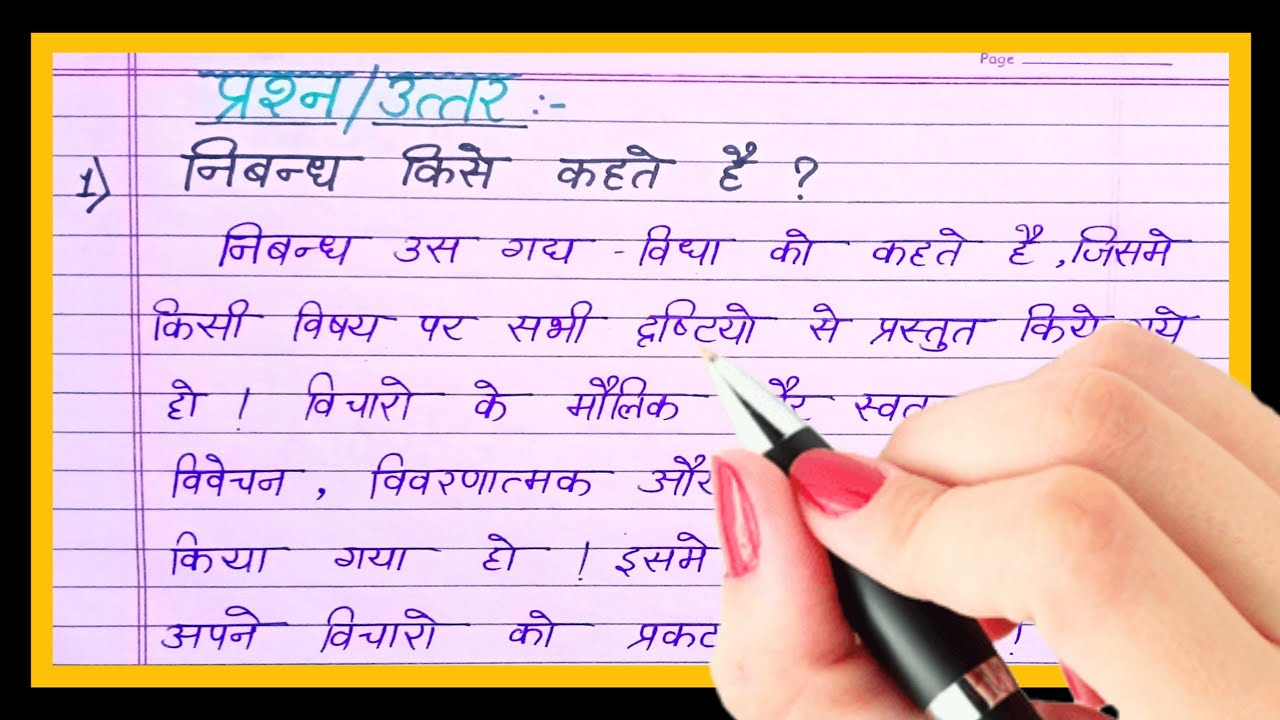 Page
प्रश्न/उत्तर :-
1) निबन्ध किसे कहते है ?
निबन्ध उस गद्य - विधा को कहते है ,जिसमे
किसी विषय पर सभी द्रष्टियो से प्रस्तुत किये गये
हो । विचारो के मौलिक
विवेचन , विवरणात्मक और
किया गया हो । इसमे
अपने विचारो को प्रकट ।